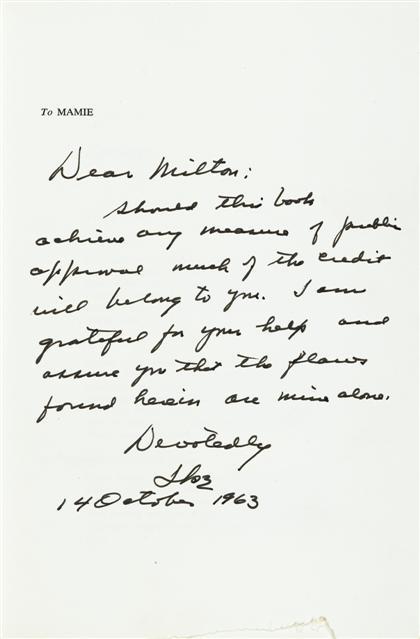 To MAMIE
Dear Milton:
Should this book
achieve any measure of public
approval much of the credit
will belong to you. I am
grateful for your help and
assure you that the flaws
found herein are mine alone.
Devotedly
Ike
14 October 1963